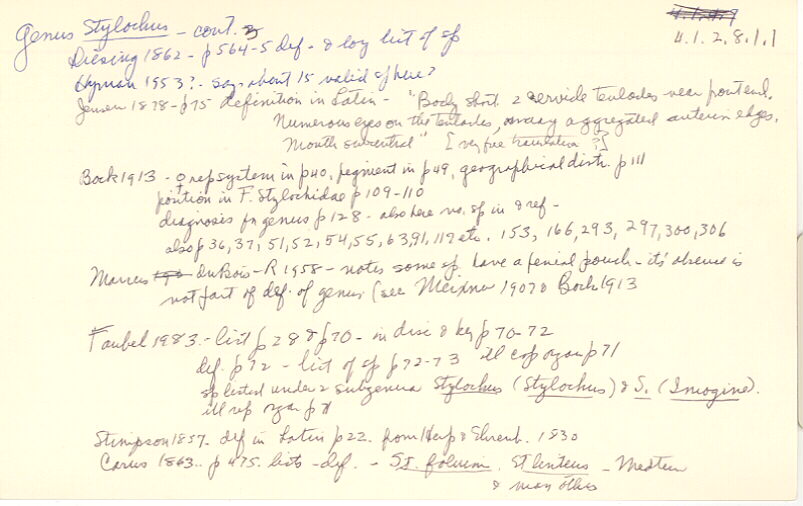 Genus Stylochus - cont. 3
4.1.2.8.1.1
Diesing 1862 - p 564-5 def - & long list of sp
Hyman 1953? - says about 15 valid sp here?
Jensen 1878 - p 75 definition in Latin - "Body short. 2 tentacles near front end.
Numerous eyes on the tentacles, many aggregated anterior edges.
Mouth subcentral" [very free translation ?]
Bock 1913 - ♀ rep system in p 40, pigment in p 49, geographical distr. p 111
position in F. Stylochidae p 109-110
diagnosis for genus p 128 - also here no. sp in & ref -
also p 36, 37, 51, 52, 54, 55, 63, 91, 119 etc. 153, 166, 293, 297, 300, 306
Marcus duBois-R 1958 - notes some sp. have a penial pouch - it's absence is
not part of def. of genus (see Meixner 1907 & Bock 1913
Faubel 1983 - list p 28 & p 70 - in disc & key p 70-72
def. p 72 - list of sp p 72-73 ill cop organ p 71
sp listed under 2 subgenera Stylochus (Stylochus) & S. (Imogine).
ill rep organ p 71
Stimpson 1857. def in Latin p 22. from Hemp & Ehrenb. 1830
Carus 1863.. p 475. lists - def. - St. folium.
& many others